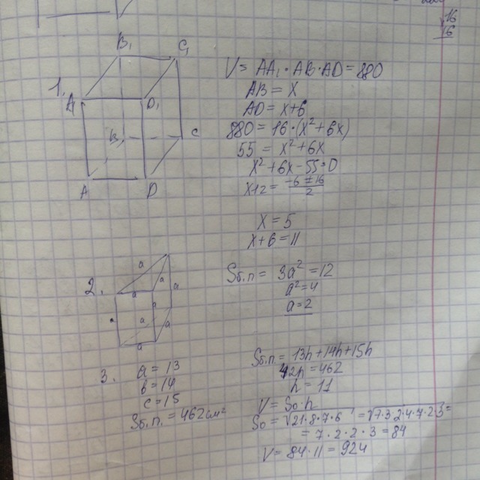 16
16
1.
B₁ C₁
A₁ D₁
B C
A D
V = AA₁ · AB · AD = 880
AB = x
AD = x+6
880 = 16 · (x² + 6x)
55 = x² + 6x
x² + 6x - 55 = 0
x₁,₂ = (-6 ± 16)/2
x = 5
x+6 = 11
2.
a
a a
a a
a a
a
Sб.п = 3a² = 12
a² = 4
a = 2
3. a = 13
b = 14
c = 15
Sб.п. = 462 см²
Sб.п = 13h + 14h + 15h
42h = 462
h = 11
V = S₀ · h
S₀ = √21·8·7·6 = √7·3·2·4·7·2·3 =
= 7 · 2 · 2 · 3 = 84
V = 84 · 11 = 924